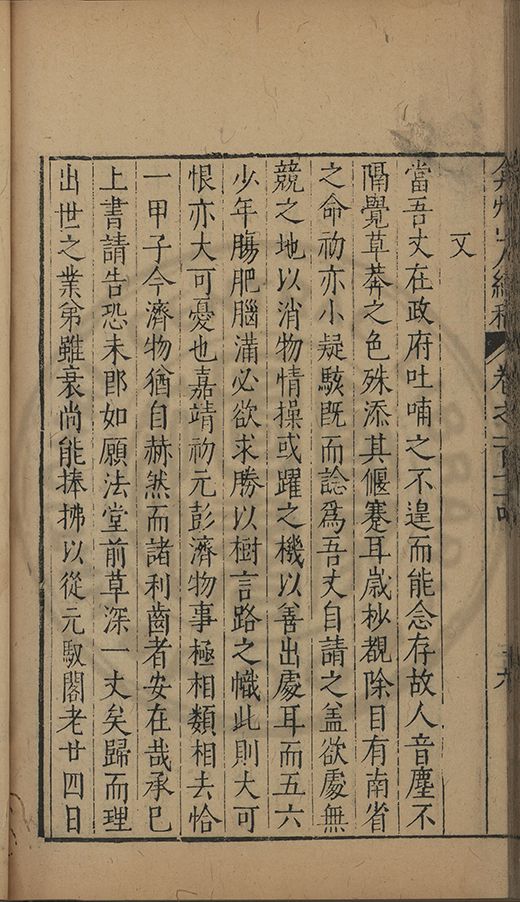 弇州山人續稿 卷之一百
又
當吾丈在政府吐哺之不遑而能念存故人音塵不
隔覺草莽之色殊添其偃蹇耳歲杪覩除目有南省
之命初亦小疑駭既而諗爲吾丈自請之盖欲處無
競之地以消物情操或躍之機以善出處耳而五六
少年腸肥腦滿必欲求勝以樹言路之幟此則大可
恨亦大可憂也嘉靖初元彭濟物事極相類相去恰
一甲子今濟物猶自赫然而諸利齒者安在哉承巳
上書請告恐未即如願法堂前草深一丈矣歸而理
出世之業弟雖衰尚能捧拂以從元馭閣老廿四日